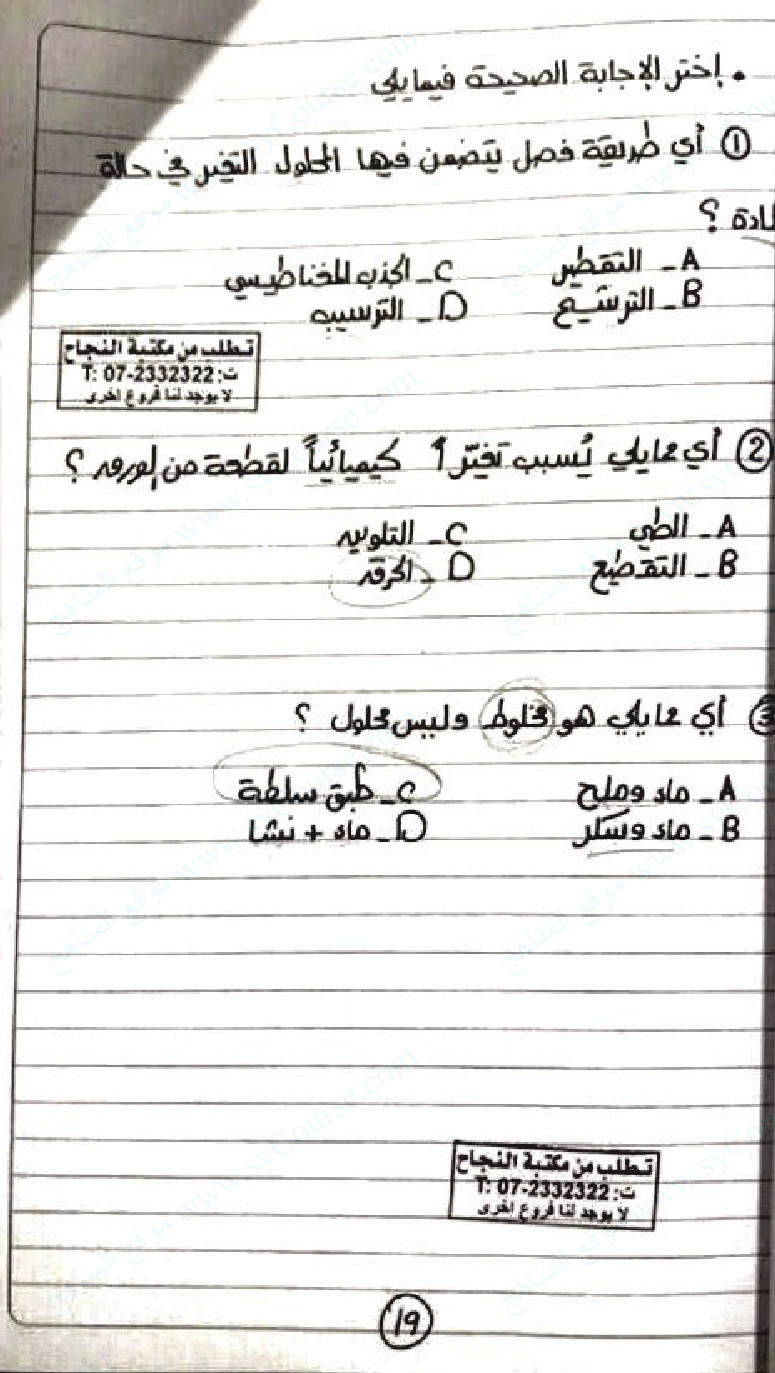 • إختر الإجابة الصحيحة فيمايلي
① أي طريقة فصل يتضمن فيها المحلول التغير في حالة
المادة ؟
A - التقطير C - الجذب المغناطيسي
B - الترشيح D - الترسيب
تطلب من مكتبة النجاح
T: 07-2332322 :ت
لا يوجد لنا فروع اخرى
② أي مايلي يُسبب تغيّراً كيميائياً لقطعة من الورق ؟
A - الطي C - التلوين
B - التقطيع D - الحرق
③ أي مايلي هو مخلوط وليس محلول ؟
A - ماء وملح C - طبق سلطة
B - ماء وسكر D - ماء + نشا
تطلب من مكتبة النجاح
T: 07-2332322 :ت
لا يوجد لنا فروع اخرى
19
موقع المناهج www.syCourse.com